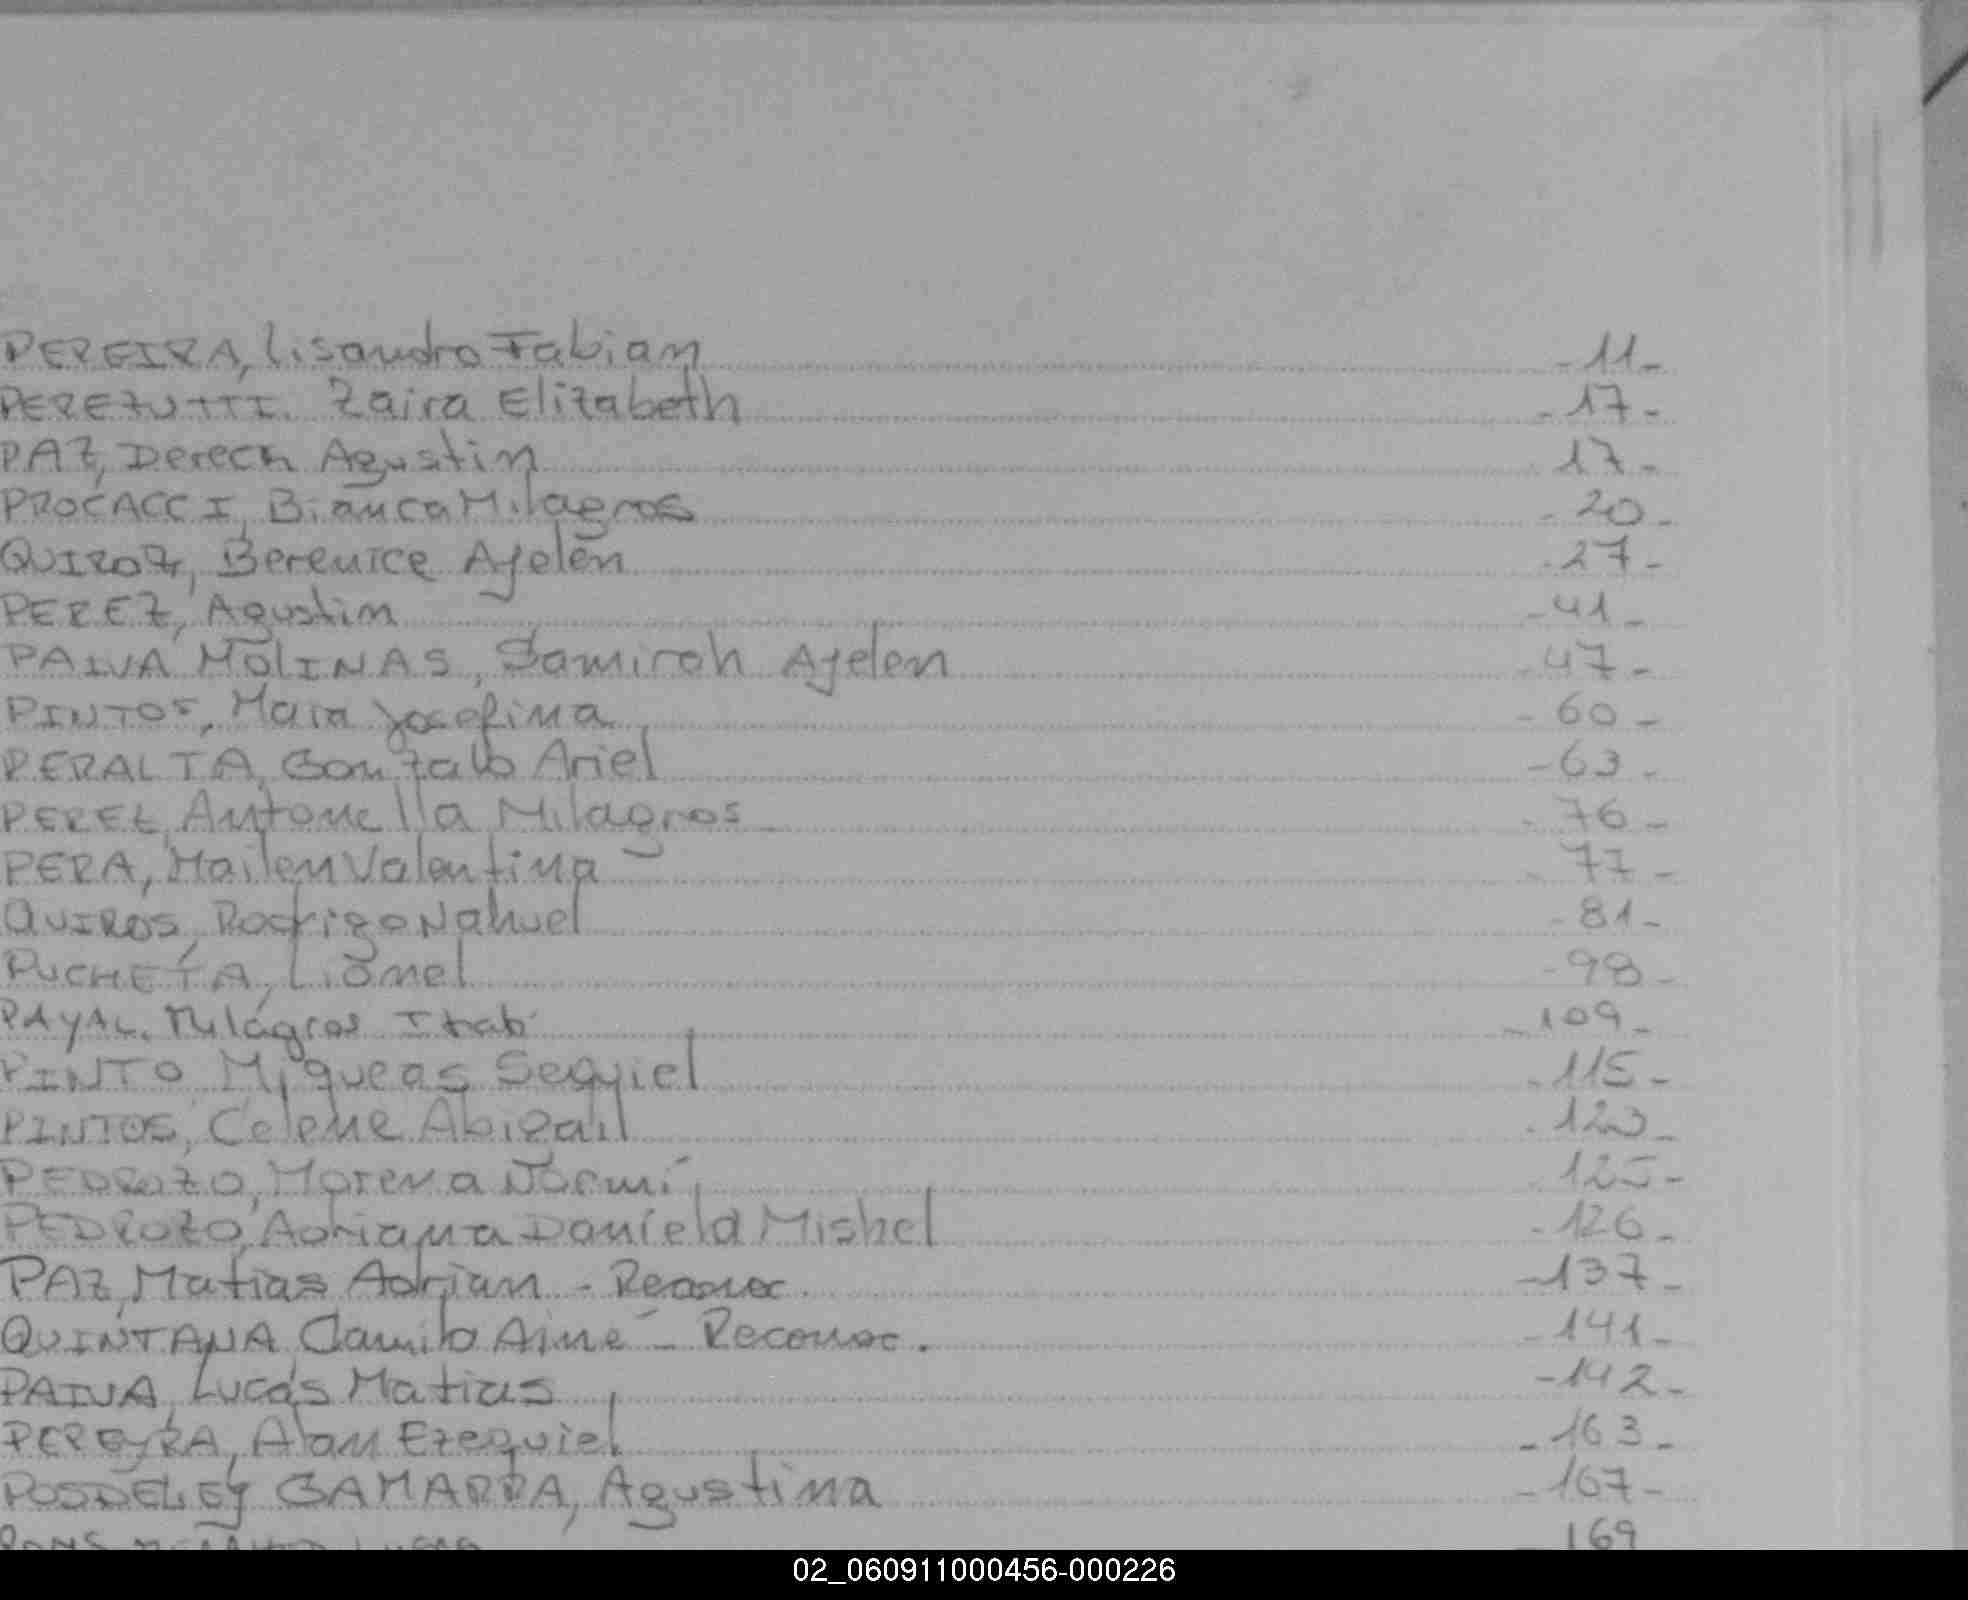 PEREIRA, Lisandro Fabian -11-
PEREZUTTI. Zaira Elizabeth -17-
PAZ, Dereck Agustin 17-
PROCACCI, Bianca Milagros -20-
QUIROZ, Berenice Ayelén -27-
PEREZ, Agustin -41-
PAIVA MOLINAS, Samirah Ayelen -47-
PINTOS, Maia Josefina -60-
PERALTA, Gonzalo Ariel -63-
PEREZ, Antonella Milagros -76-
PERA, Mailen Valentina -77-
QUIROS, Rodrigo Nahuel -81-
PUCHETA, Lionel -98-
PAYAL. Milagros -109-
PINTO Miqueas Sequiel -115-
PINTOS, Celene Abigail -123-
PEDROZO, Morena Noemí -125-
PEDROZO, Adriana Daniela Mishel -126-
PAZ, Matias Adrian - Reconoc -137-
QUINTANA, Camila Aimé - Reconoc. -141-
PAIVA, Lucas Matias -142-
PEREYRA, Alan Ezequiel -163-
POSDELEY GAMARRA, Agustina -167-
169
02_060911000456-000226